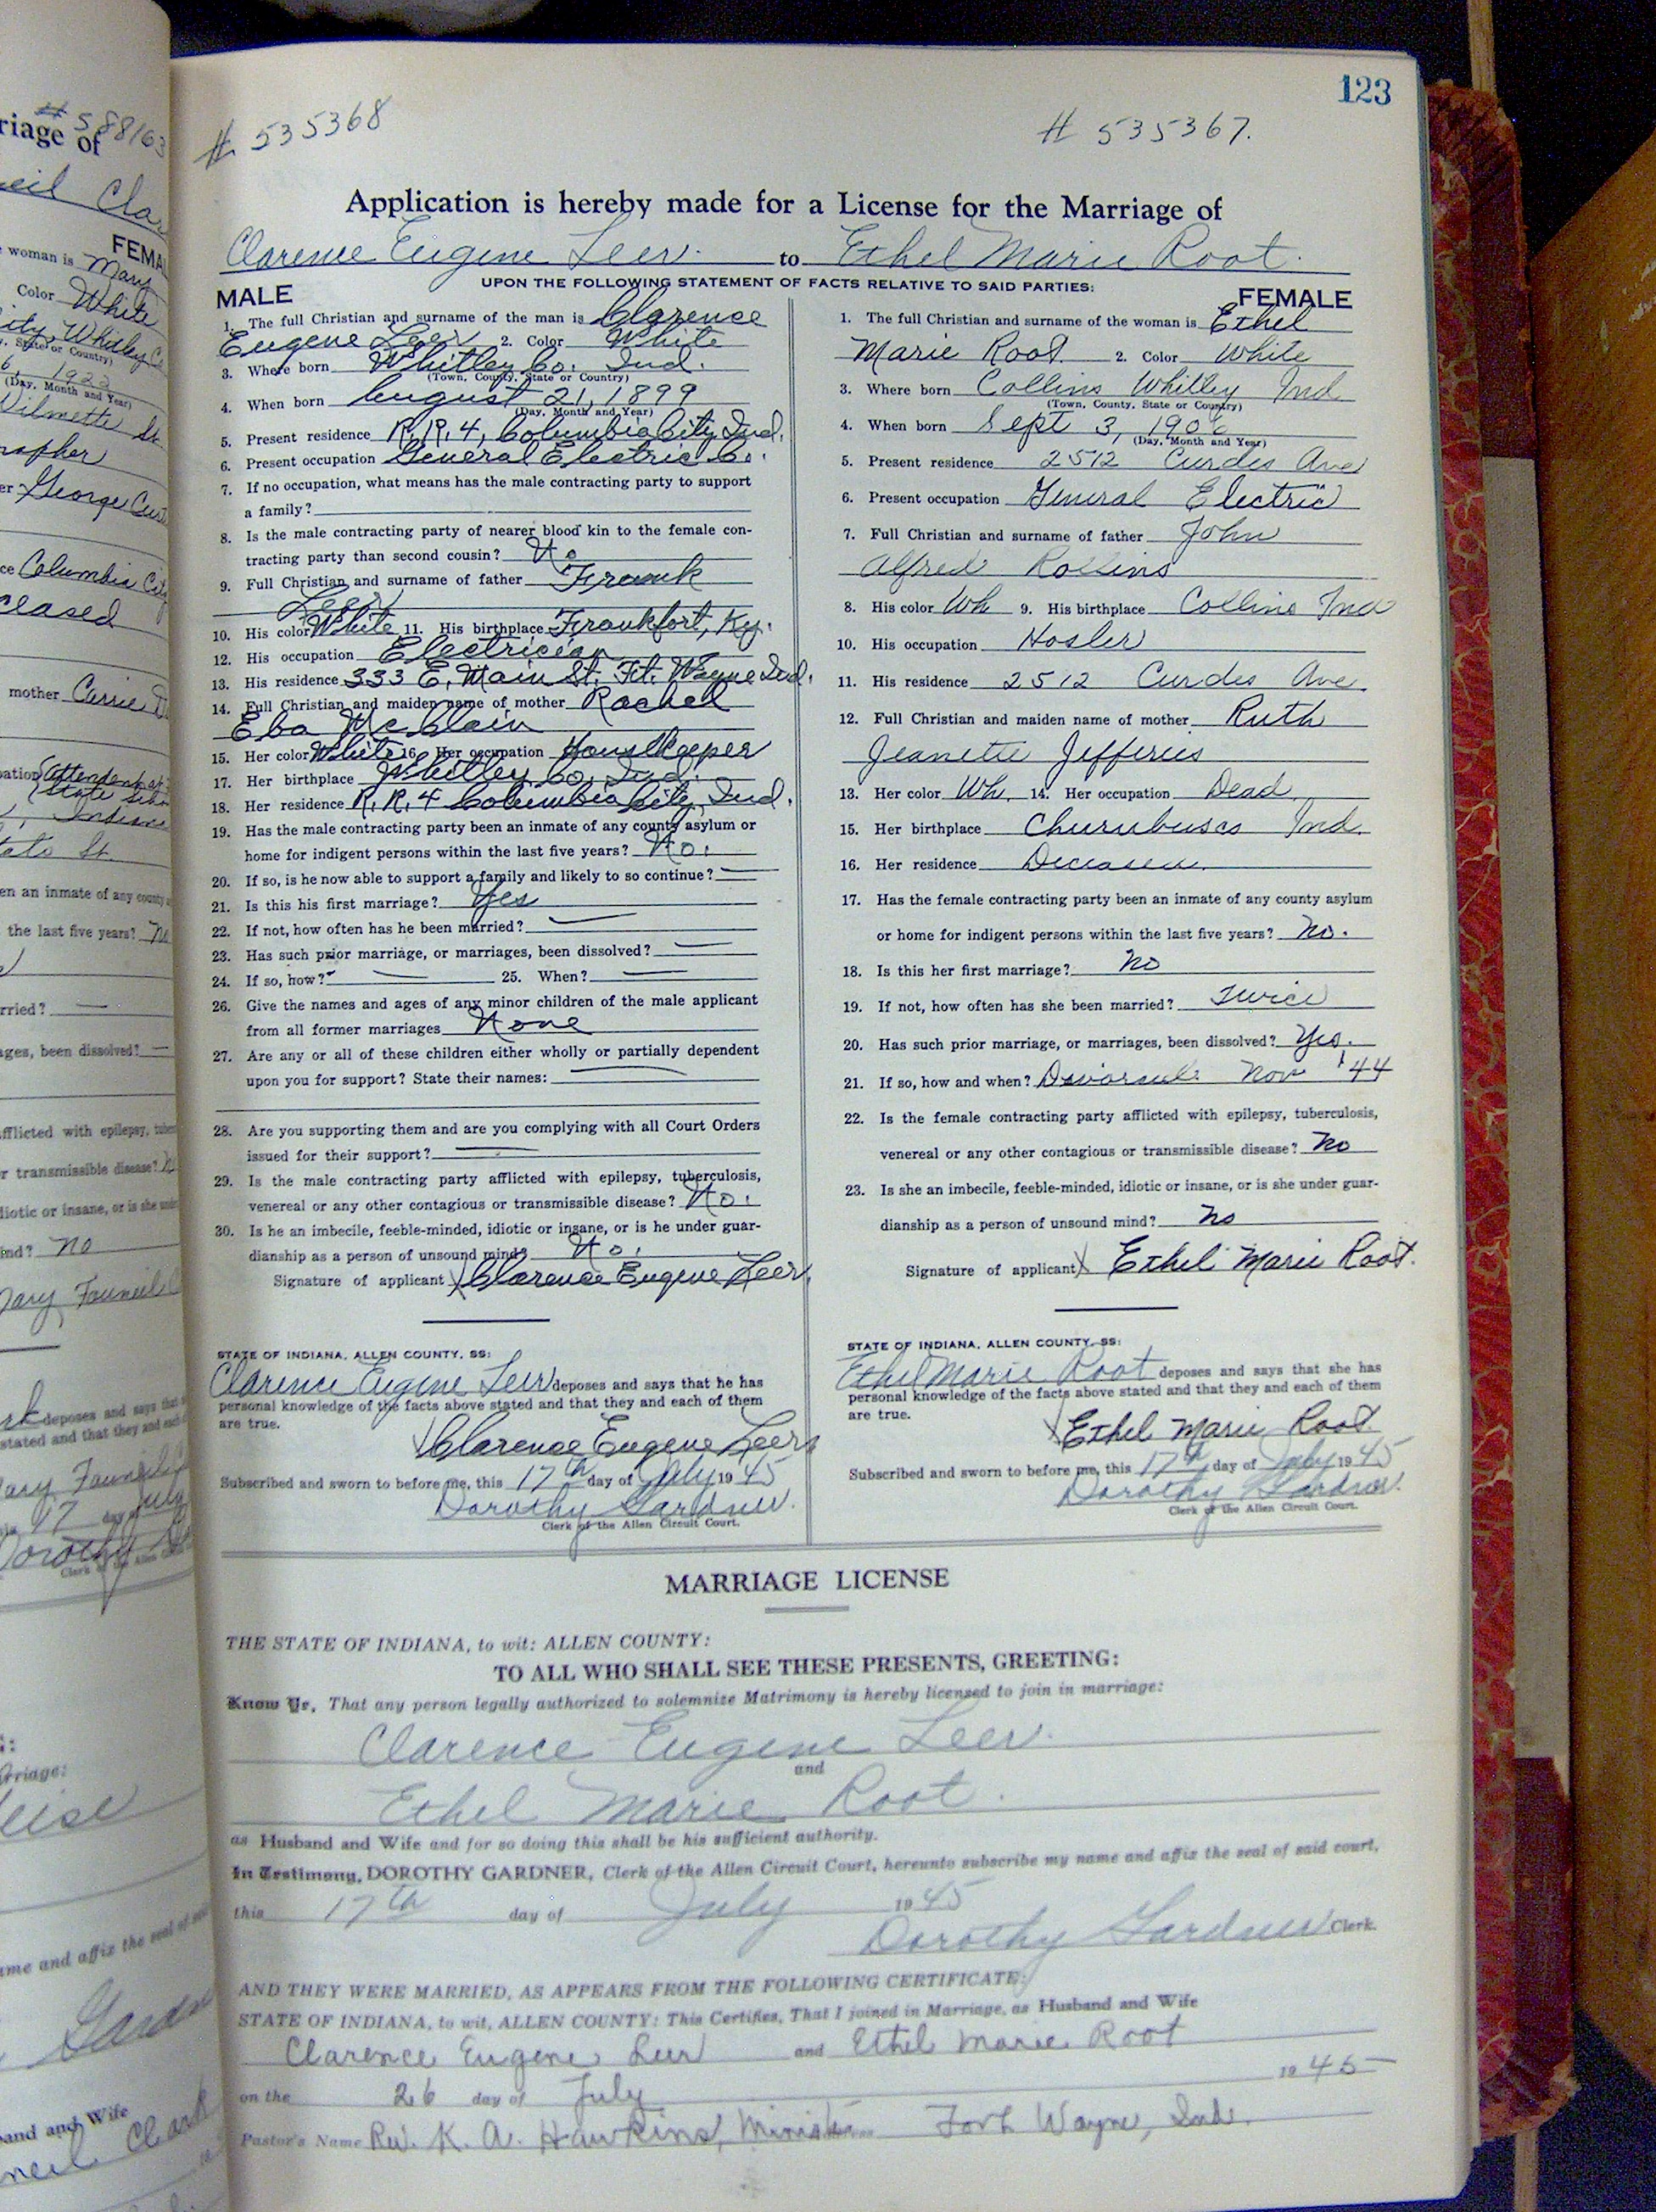 123
# 535368
# 535367.
Application is hereby made for a License for the Marriage of
Clarence Eugene Leer. to Ethel Marie Root.
UPON THE FOLLOWING STATEMENT OF FACTS RELATIVE TO SAID PARTIES:
MALE
1. The full Christian and surname of the man is Clarence
Eugene Leer 2. Color White
3. Where born Whitley Co. Ind.
(Town, County, State or Country)
4. When born August 21, 1899
(Day, Month and Year)
5. Present residence R.R. 4, Columbia City Ind.
6. Present occupation General Electric Co.
7. If no occupation, what means has the male contracting party to support
a family?
8. Is the male contracting party of nearer blood kin to the female con-
tracting party than second cousin? No
9. Full Christian and surname of father Frank
Leer
10. His color White 11. His birthplace Frankfort, Ky.
12. His occupation Electrician
13. His residence 333 E. Main St. Ft. Wayne Ind.
14. Full Christian and maiden name of mother Rachel
Eba McClain
15. Her color White 16. Her occupation Housekeeper
17. Her birthplace Whitley Co. Ind.
18. Her residence R.R. 4 Columbia City, Ind.
19. Has the male contracting party been an inmate of any county asylum or
home for indigent persons within the last five years? No.
20. If so, is he now able to support a family and likely to so continue? —
21. Is this his first marriage? Yes
22. If not, how often has he been married? —
23. Has such prior marriage, or marriages, been dissolved? —
24. If so, how? — 25. When? —
26. Give the names and ages of any minor children of the male applicant
from all former marriages None
27. Are any or all of these children either wholly or partially dependent
upon you for support? State their names: —
28. Are you supporting them and are you complying with all Court Orders
issued for their support? —
29. Is the male contracting party afflicted with epilepsy, tuberculosis,
venereal or any other contagious or transmissible disease? No.
30. Is he an imbecile, feeble-minded, idiotic or insane, or is he under guar-
dianship as a person of unsound mind? No.
Signature of applicant X Clarence Eugene Leer
STATE OF INDIANA, ALLEN COUNTY, SS:
Clarence Eugene Leer deposes and says that he has
personal knowledge of the facts above stated and that they and each of them
are true.
Clarence Eugene Leer
Subscribed and sworn to before me, this 17th day of July 1945
Dorothy Gardner.
Clerk of the Allen Circuit Court.
FEMALE
1. The full Christian and surname of the woman is Ethel
Marie Root 2. Color White
3. Where born Collins Whitley Ind
(Town, County, State or Country)
4. When born Sept 3, 1906
(Day, Month and Year)
5. Present residence 2512 Curdes Ave
6. Present occupation General Electric
7. Full Christian and surname of father John
Alfred
8. His color Wh 9. His birthplace Collins Ind
10. His occupation Hosler
11. His residence 2512 Curdes Ave.
12. Full Christian and maiden name of mother Ruth
Jeanette Jefferies
13. Her color Wh. 14. Her occupation Dead
15. Her birthplace Churubusco Ind
16. Her residence Deceased.
17. Has the female contracting party been an inmate of any county asylum
or home for indigent persons within the last five years? No.
18. Is this her first marriage? No
19. If not, how often has she been married? Twice
20. Has such prior marriage, or marriages, been dissolved? Yes.
21. If so, how and when? Nov '44
22. Is the female contracting party afflicted with epilepsy, tuberculosis,
venereal or any other contagious or transmissible disease? No
23. Is she an imbecile, feeble-minded, idiotic or insane, or is she under guar-
dianship as a person of unsound mind? No
Signature of applicant X Ethel Marie Root.
STATE OF INDIANA, ALLEN COUNTY, SS:
Ethel Marie Root deposes and says that she has
personal knowledge of the facts above stated and that they and each of them
are true.
Ethel Marie Root.
Subscribed and sworn to before me, this 17th day of July 1945
Dorothy Gardner.
Clerk of the Allen Circuit Court.
MARRIAGE LICENSE
THE STATE OF INDIANA, to wit: ALLEN COUNTY:
TO ALL WHO SHALL SEE THESE PRESENTS, GREETING:
Know Ye, That any person legally authorized to solemnize Matrimony is hereby licensed to join in marriage:
Clarence Eugene Leer.
and
Ethel Marie Root.
as Husband and Wife and for so doing this shall be his sufficient authority.
In Testimony, DOROTHY GARDNER, Clerk of the Allen Circuit Court, hereunto subscribe my name and affix the seal of said court,
this 17th day of July 1945
Dorothy Gardner Clerk.
AND THEY WERE MARRIED, AS APPEARS FROM THE FOLLOWING CERTIFICATE:
STATE OF INDIANA, to wit, ALLEN COUNTY: This Certifies, That I joined in Marriage, as Husband and Wife
Clarence Eugene Leer and Ethel Marie Root
on the 26 day of July 1945
Pastor's Name Rev. K. A. Hawkins, Minister Fort Wayne, Ind.